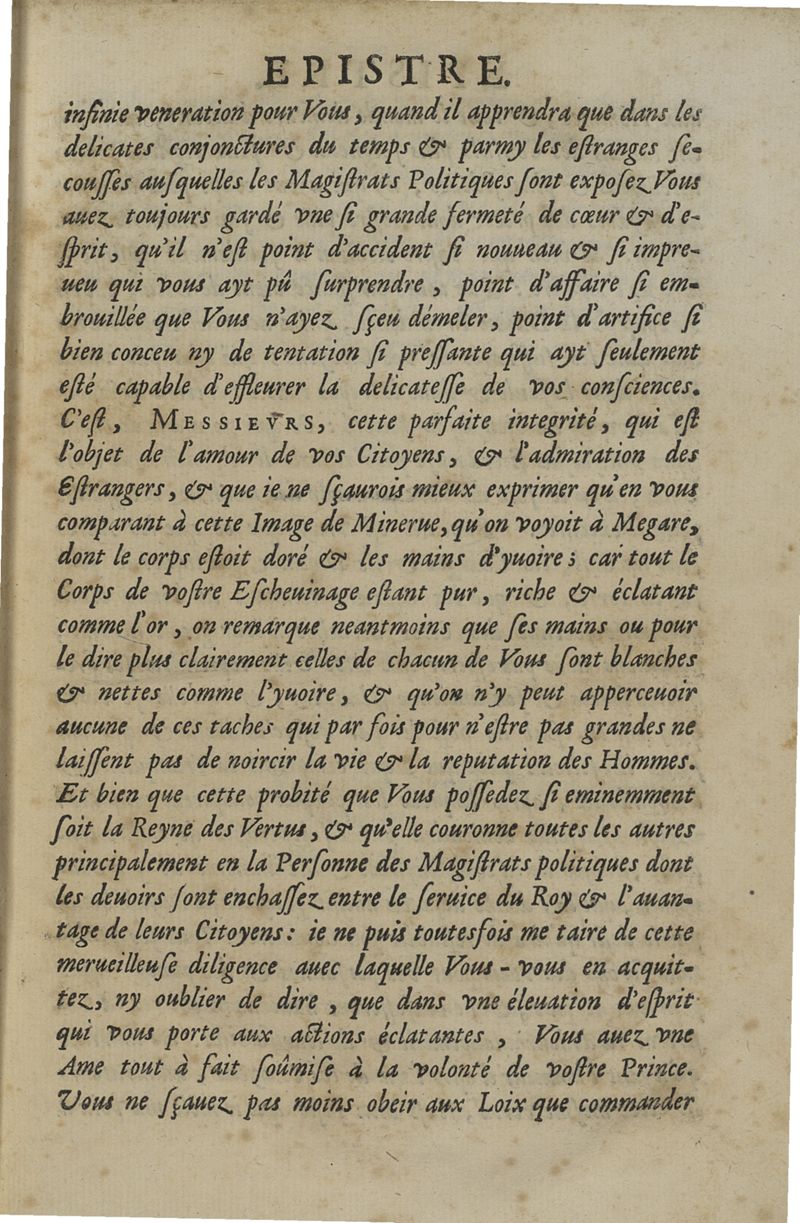 EPISTRE.
infinie veneration pour Vous, quand il apprendra que dans les
delicates conjonctures du temps & parmy les eſtranges ſe-
couſſes auſquelles les Magiſtrats Politiques ſont expoſez Vous
auez toujours gardé vne ſi grande fermeté de cœur & d'e-
ſprit, qu'il n'eſt point d'accident ſi nouueau & ſi impre-
ueu qui vous ayt pû ſurprendre, point d'affaire ſi em-
brouillée que Vous n'ayez ſçeu démeler, point d'artifice ſi
bien conceu ny de tentation ſi preſſante qui ayt ſeulement
eſté capable d'effleurer la delicateſſe de vos conſciences.
C'eſt, MESSIEVRS, cette parfaite integrité, qui eſt
l'objet de l'amour de vos Citoyens, & l'admiration des
Eſtrangers, & que ie ne ſçaurois mieux exprimer qu'en vous
comparant à cette Image de Minerue, qu'on voyoit à Megare,
dont le corps eſtoit doré & les mains d'yuoire; car tout le
Corps de voſtre Eſcheuinage eſtant pur, riche & éclatant
comme l'or, on remarque neantmoins que ſes mains ou pour
le dire plus clairement celles de chacun de Vous ſont blanches
& nettes comme l'yuoire, & qu'on n'y peut apperceuoir
aucune de ces taches qui par fois pour n'eſtre pas grandes ne
laiſſent pas de noircir la vie & la reputation des Hommes.
Et bien que cette probité que Vous poſſedez ſi eminemment
ſoit la Reyne des Vertus, & qu'elle couronne toutes les autres
principalement en la Perſonne des Magiſtrats politiques dont
les deuoirs ſont enchaſſez entre le ſeruice du Roy & l'auan-
tage de leurs Citoyens: ie ne puis toutesfois me taire de cette
merueilleuſe diligence auec laquelle Vous-vous en acquit-
tez, ny oublier de dire, que dans vne éleuation d'eſprit
qui vous porte aux actions éclatantes, Vous auez vne
Ame tout à fait ſoûmiſe à la volonté de voſtre Prince.
Vous ne ſçauez pas moins obeir aux Loix que commander